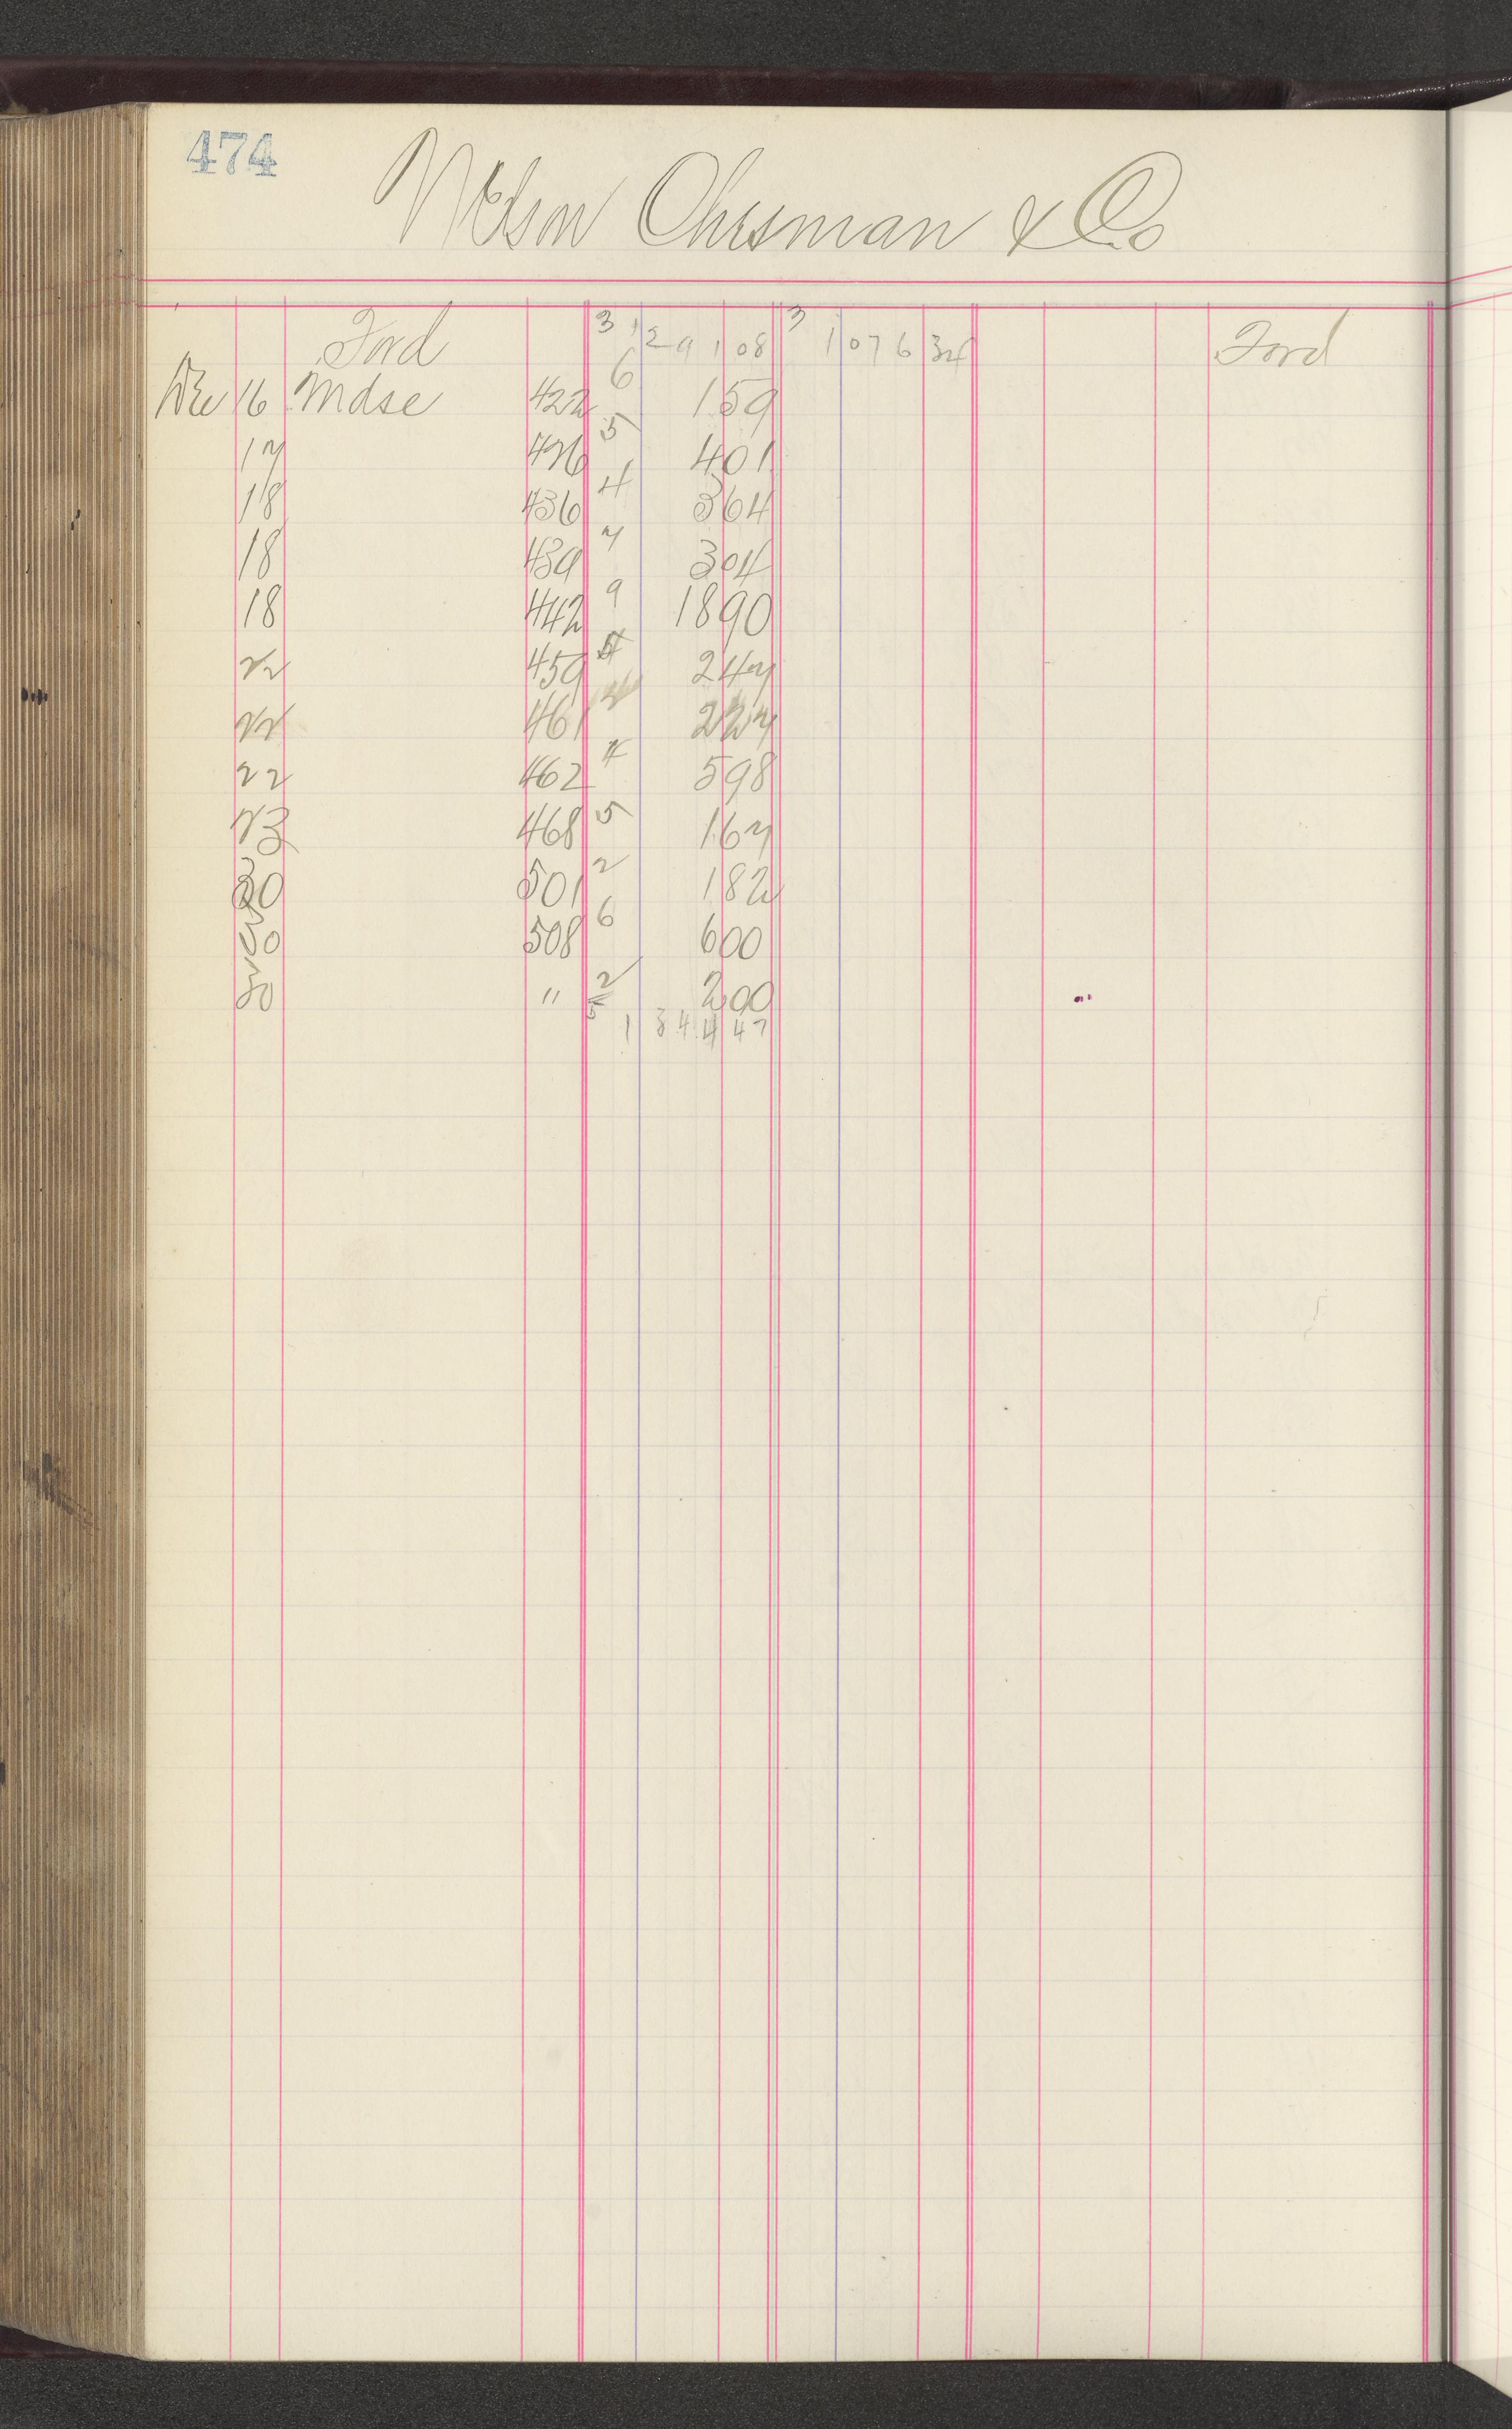 474
Nelson Chrisman & Co
Ford 3 1 291 08 3 1 076 34 Ford
Dec 16 Mdse 422 6 1 59
17 426 5 4 01
18 436 4 3 64
18 439 7 3 04
18 442 9 18 90
22 459 2 47
22 461 2 27
22 462 4 5 98
23 468 5 1 67
30 501 2 1 82
30 508 6 6 00
30 " 2 2 00
1 344 47